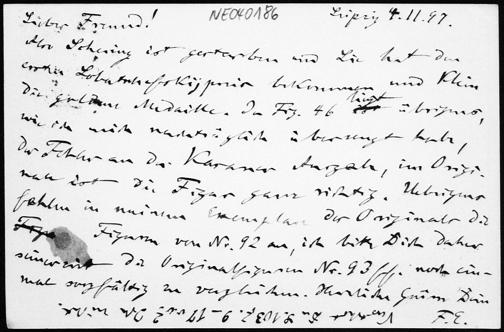 NE040186
Leipzig 4.11.97.
Lieber Freund!
Also Schering ist gestorben und Lie hat den
ersten Lobatschefskijpreis bekommen und Klein
die goldene Medaille. In Fig. 46 liegt übrigens,
wie ich mich nachträglich überzeugt habe,
der Fehler an der Kasaner Ausgabe, im Origi-
nal ist die Figur ganz richtig. Uebrigens
fehlen in meinem Exemplar des Originals die
Figuren von No. 92 an, ich bitte Dich daher
die Originalfiguren No. 93 ff. noch ein-
mal sorgfältig zu vergleichen. Herzliche Grüsse Dein
F. E.